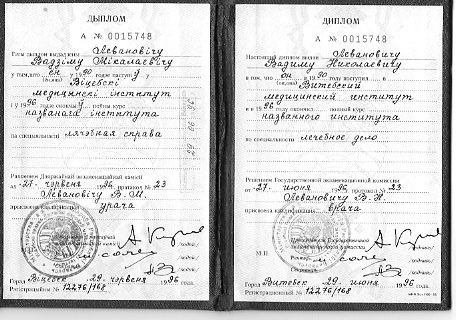 ДЫПЛОМ
А № 0015748
Гэты дыплом выдадзены Левановічу
Вадзіму Мікалаевічу
у тым, што ён у 1990 годзе паступіў у
Віцебскі
медыцынскі інстытут
і ў 1996 годзе скончыў поўны курс
названага інстытута
па спецыяльнасці лячэбная справа
Рашэннем Дзяржаўнай экзаменацыйнай камісіі
ад 27 чэрвеня 1996, пратакол № 23
Левановічу В. М.
прысвоена кваліфікацыя урача
Горад Віцебск 29 чэрвеня 1996 года.
Рэгістрацыйны № 12276/168
ДИПЛОМ
А № 0015748
Настоящий диплом выдан Левановичу
Вадиму Николаевичу
в том, что он в 1990 году поступил в
Витебский
медицинский институт
и в 1996 году окончил полный курс
названного института
по специальности лечебное дело
Решением Государственной экзаменационной комиссии
от 27 июня 1996, протокол № 23
Левановичу В. Н.
присвоена квалификация врача
Председатель Государственной
экзаменационной комиссии
М.П.
Ректор
Секретарь
Город Витебск 29 июня 1996 года.
Регистрационный № 12276/168